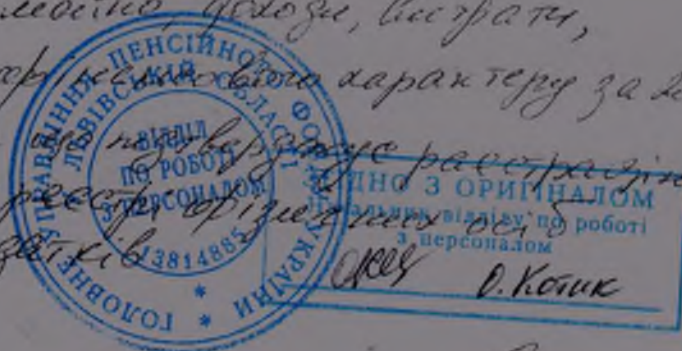 майно, доходи, витрати,
характеру за
що підтверджує реєстрацію
реєстрі фізичних осіб
ГОЛОВНЕ УПРАВЛІННЯ ПЕНСІЙНОГО ФОНДУ УКРАЇНИ
ЛЬВІВСЬКІЙ ОБЛАСТІ
ВІДДІЛ
ПО РОБОТІ
З ПЕРСОНАЛОМ
13814885
ДНО З ОРИГІНАЛОМ
Начальник відділу по роботі
з персоналом
О. Котик